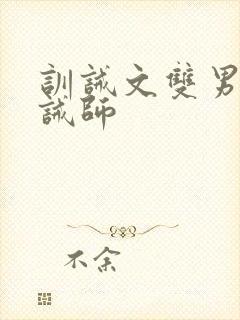 訓誡文雙男
誡師
不余